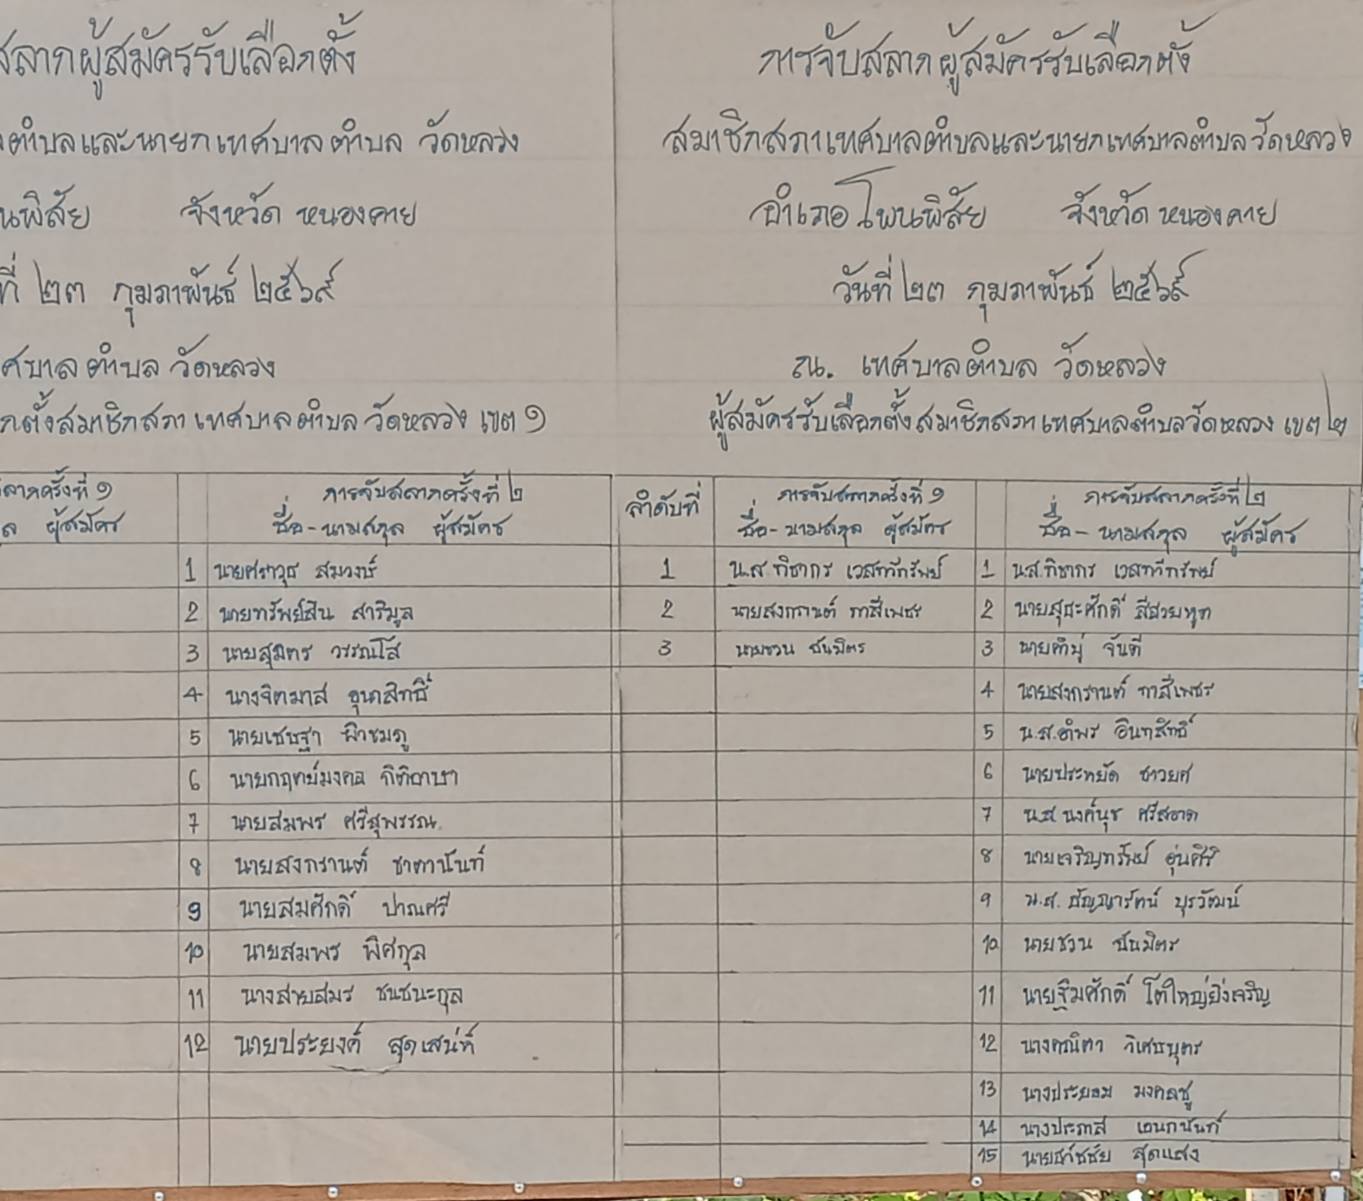 สลากผู้สมัครรับเลือกตั้ง
ตำบลและนายกเทศบาลตำบล วัดหลวง
นพิสัย จังหวัด หนองคาย
ที่ ๒๓ กุมภาพันธ์ ๒๕๖๙
ศบาลตำบล วัดหลวง
กตั้งสมาชิกสภาเทศบาลตำบล วัดหลวง เขต ๑
ลากครั้งที่ ๑
ล ผู้สมัคร
การจับสลากครั้งที่ ๒
ชื่อ-นามสกุล ผู้สมัคร
1 นายศราวุธ สมวงษ์
2 นายทรัพย์สิน สาริมูล
3 นายสุมิตร วรรณโส
4 นางจิตมาส
5 นายเชษฐา
6 นายกฤตย์มงคล
7 นายสมพร ศรีสุพรรณ
8 นายสงกรานต์ ชาตานันท์
9 นายสมศักดิ์ ปาณศรี
10 นายสมพร พิศกุล
11 นางสายสมร ชนชนะกุล
12 นายประยงค์ สุดเสน่ห์
การจับสลากผู้สมัครรับเลือกตั้ง
สมาชิกสภาเทศบาลตำบลและนายกเทศบาลตำบลวัดหลวง
อำเภอโพนพิสัย จังหวัด หนองคาย
วันที่ ๒๓ กุมภาพันธ์ ๒๕๖๙
ณ. เทศบาลตำบล วัดหลวง
ผู้สมัครรับเลือกตั้งสมาชิกสภาเทศบาลตำบลวัดหลวง เขต ๒
ลำดับที่
การจับสลากครั้งที่ ๑
ชื่อ-นามสกุล ผู้สมัคร
การจับสลากครั้งที่ ๒
ชื่อ-นามสกุล ผู้สมัคร
1 น.ส.ทิชากร เวสทวีทรัพย์ 1 น.ส.ทิชากร เวสทวีทรัพย์
2 นายสงกรานต์ กาสีเพชร 2 นายสุระศักดิ์
3 นายชวน ชันมิตร 3 นายคำปู่ จันดี
4 นายสงกรานต์ กาสีเพชร
5 น.ส.อำพร อินทสิทธิ์
6 นายประหยัด ชาวยศ
7 น.ส.นงค์นุช ศรีสอาด
8 นายเจริญทรัพย์ อุ่นศิริ
9 น.ส. ธัญญารัตน์ บุรวัฒน์
10 นายชวน ชันมิตร
11 นายฐิมศักดิ์ โตใหญ่ยิ่งเจริญ
12 นางคณิตา วิเศษบุตร
13 นางประยอม มงคลชู
14 นางประภาส เอนกนันท์
15 นายธวัชชัย สุดแสง